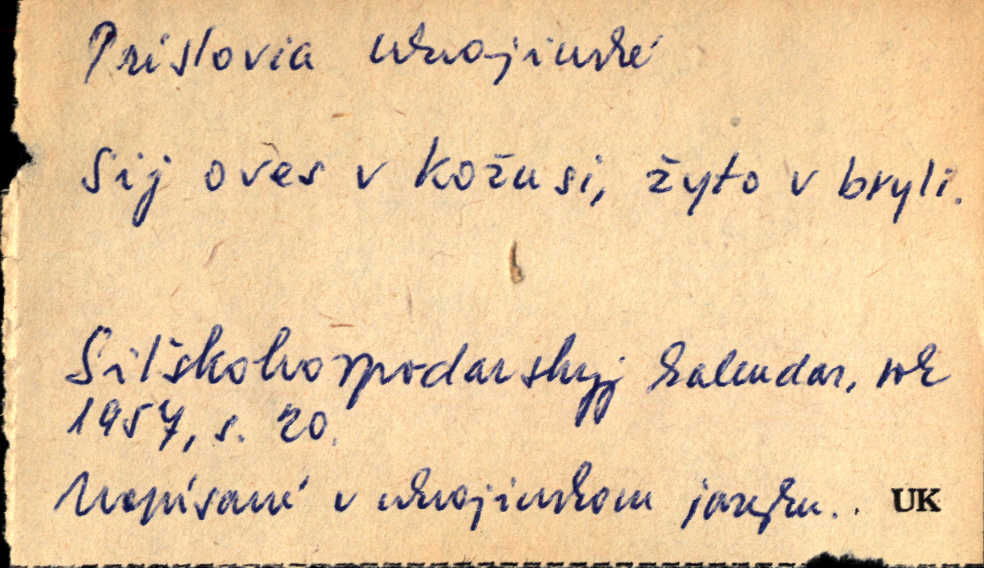 Príslovia ukrajinské
Sij oves v kožusi, žyto v bryli.
Silskohospodarskyj kalendar, rok
1957, s. 20.
Napísané v ukrajinskom jazyku.. UK